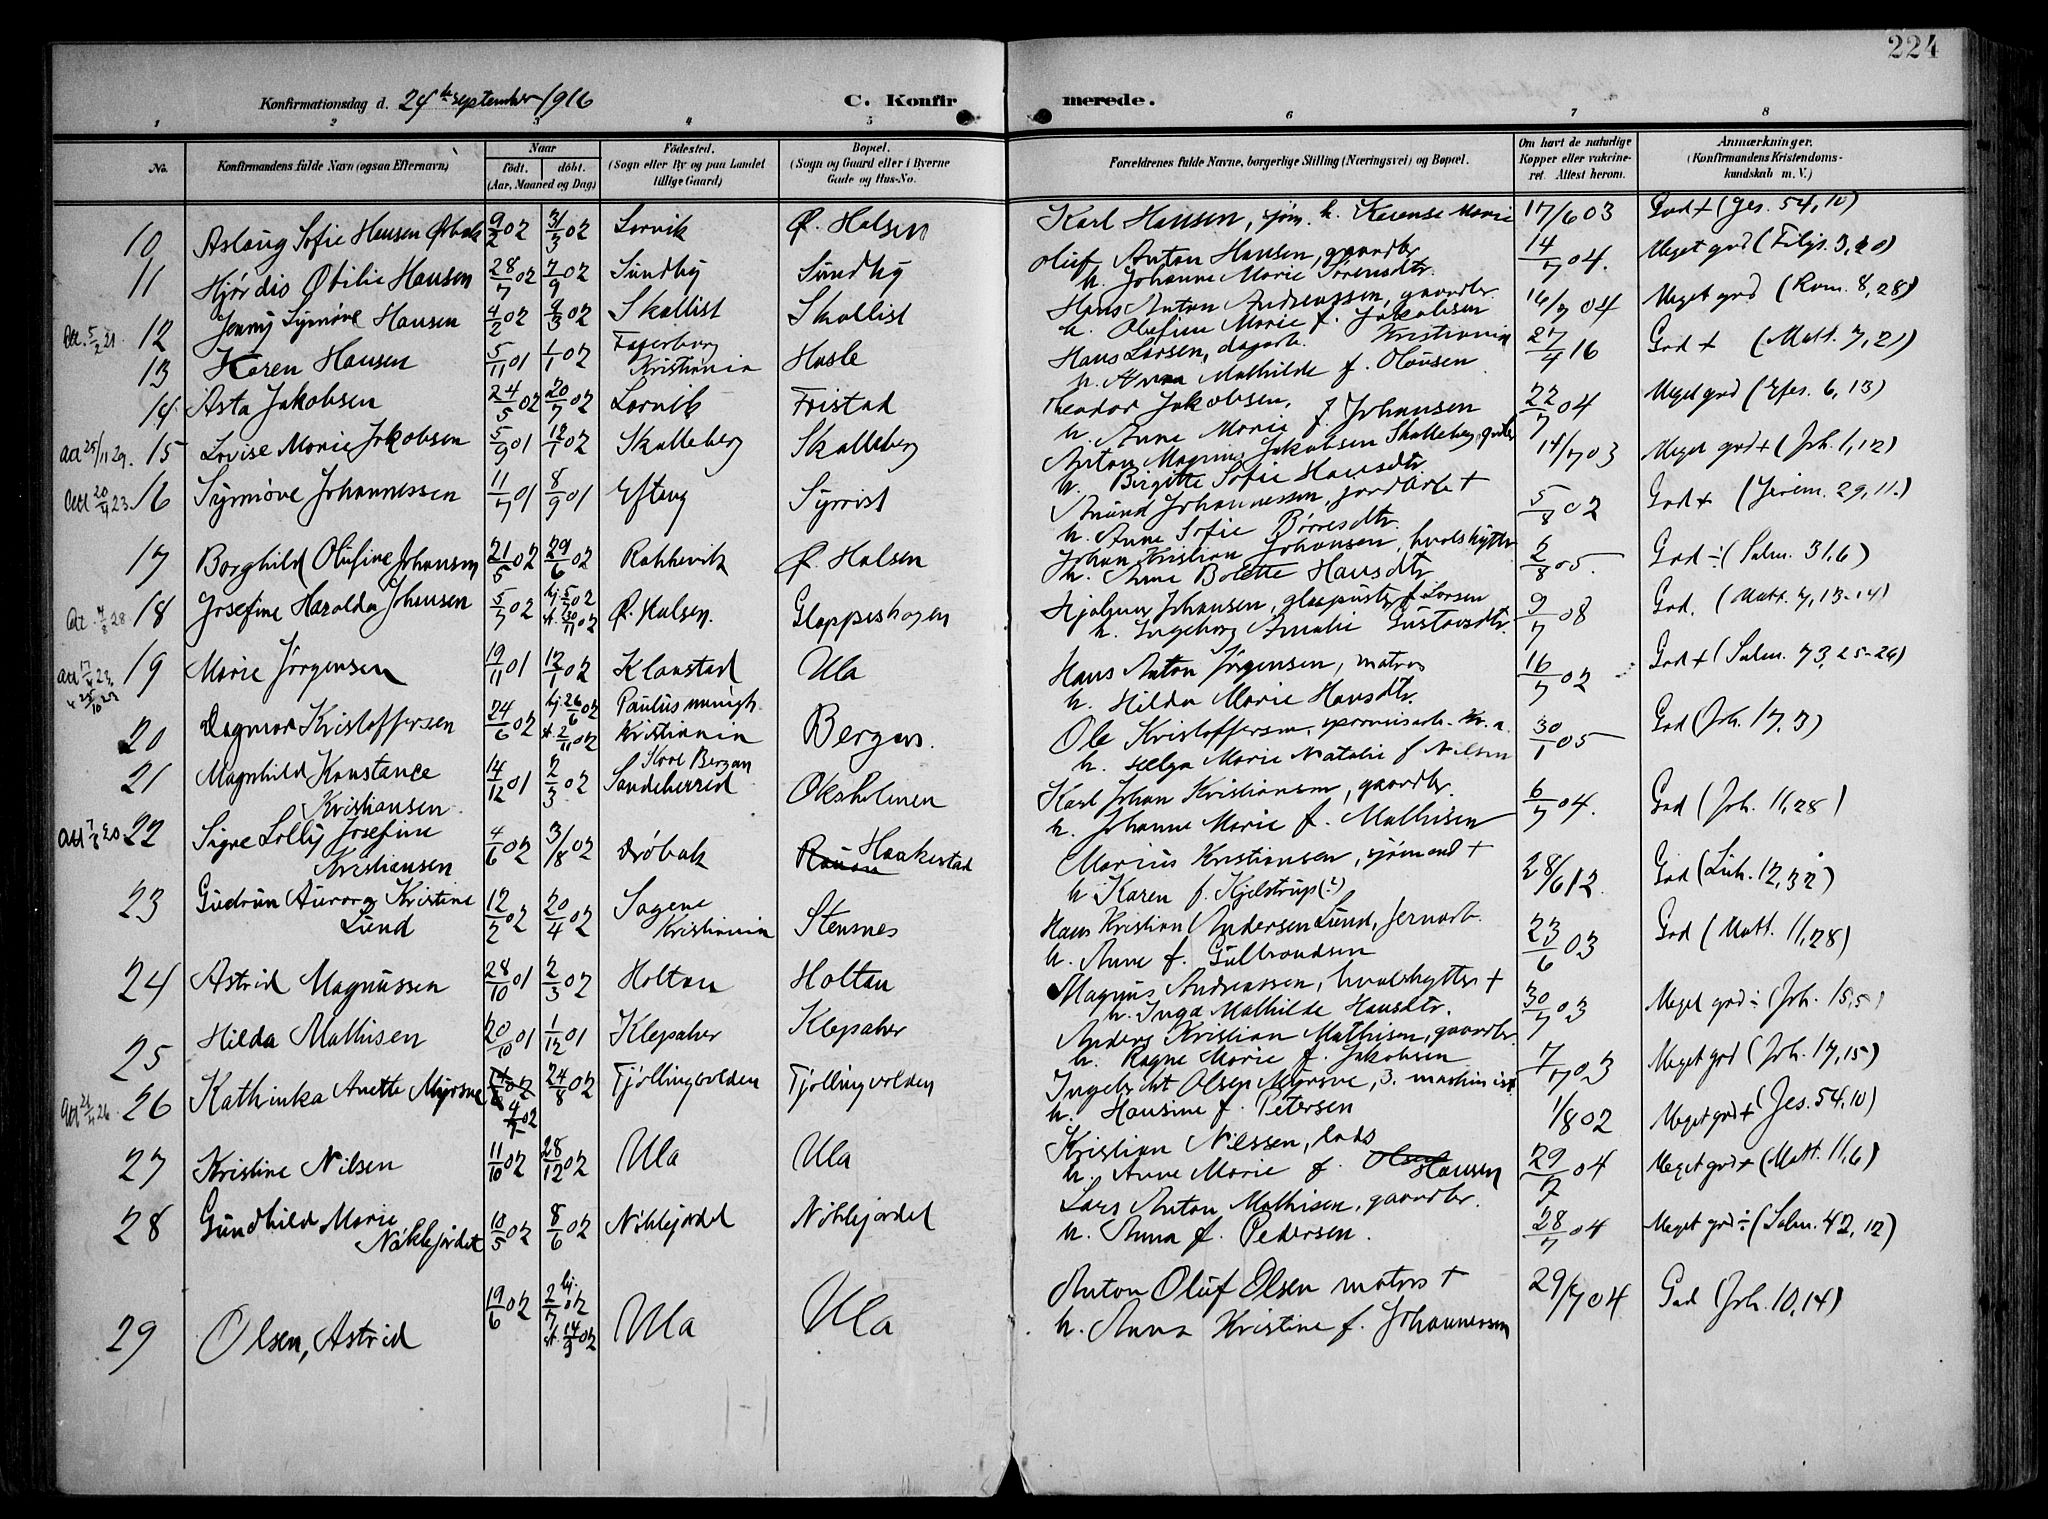 224
Konfirmationsdag d. 24de september 1916 C. Konfir merede.
1 2 3 4 5 6 7 8
No. Konfirmandens fulde Navn (ogsaa Efternavn) Naar født. døbt. (Aar, Maaned og Dag) Fødested. (Sogn eller By og paa Landet tillige Gaard) Bopæl. (Sogn og Gaard eller i Byerne Gade og Hus-No. Forældrenes fulde Navne, borgerlige Stilling (Næringsvei) og Bopæl. Om havt de naturlige Kopper eller vakcineret. Attest herom. Anmærkninger. (Konfirmandens Kristendomskundskab m. V.)
10 Aslaug Sofie Hansen Ørbæk 9/2 02 31/3 02 Larvik Ø. Halsen Karl Hansen, sjøm. h. Karense Marie 17/6 03 God + (Jes. 54, 10)
11 Hjørdis Otilie Hansen 28/7 02 7/9 02 Sundby Sundby Oluf Anton Hansen, gaardbr.
h. Johanne Marie Sørensdtr. 14/7 04. Meget god (Filip. 3, 20)
Att. 5/2 21. 12 Jenny Synnøve Hansen 4/2 02 9/3 02 Skallist Skallist Hans Anton Andreassen, gaardbr.
h. Olufine Marie f. Jakobsen 16/7 04 Meget god (Rom. 8, 28)
13 Karen Hansen 5/11 01 1/1 02 Fagerborg
Kristiania Hasle Hans Larsen, dagarb. Kristiania
h. Anna Mathilde f. Olausen 27/4 16 God + (Matt. 7, 21)
14. Asta Jakobsen 24/5 02 20/7 02 Larvik Fristad Theodor Jakobsen,
h. Anne Marie f. Johansen 22/7 04 Meget god (Efes. 6, 13)
Att 25/11 29. 15 Lovise Marie Jakobsen 5/9 01 12/1 02 Skalleberg Skalleberg Anton Magnus Jakobsen Skalleberg, gbr
h. Birgitte Sofie Hansdtr. 14/7 03 Meget god + (Joh. 1, 12)
Att 20/4 23. 16 Synnøve Johannessen 11/7 01 8/9 01 Efteng Syrrist Anund Johannessen, jordarb +
h. Anne Sofie Børresdtr. 5/8 02 God + (Jerem. 29, 11.)
17 Borghild Olufine Johansen 21/5 02 29/6 02 Rakkevik Ø. Halsen Johan Kristian Johansen, hvalskytter
h. Anne Bolette Hansdtr 6/8 05. God ÷ (Salm. 31, 6)
Att. 4/8 28 18 Josefine Haralda Johansen 5/7 02 hj. 5/7 02
st. 30/11 02 Ø. Halsen. Gloppeshagen Hjalmar Johansen, glaspuster f. Larsen
h. Ingeborg Amalie Gustavsdtr. 9/7 08 God. (Matt. 7, 13-14)
19 Marie Jørgensen 19/11 01 12/1 02 Klaastad Ula Hans Anton Jørgensen, matros
h. Hilda Marie Hansdtr. 16/7 02 God + (Salm. 73, 25-26)
20 Dagmar Kristoffersen 24/6 02 hj. 26/6 02
st 2/11 02 Paulus menigh.
Kristiania Bergan. Ole Kristoffersen,
h. Helga Marie Natalie f Nilsen 30/1 05 God (Joh. 17, 3)
21 Magnhild Konstance
Kristiansen. 14/12 01 2/3 02 Bergan
Sandeherred Oksholmen Karl Johan Kristiansen, gaardbr.
h. Johanne Marie f. Mathisen 6/7 04. God (Joh. 11, 28)
Att 7/8 20 22 Signe Lolly Josefine
Kristiansen 4/6 02 3/8 02 Drøbak Haakestad Marius Kristiansen, sjømand +
h Karen f. Kjelstrup (?) 28/6 12. God (Luk. 12, 32)
23 Gudrun Aurora Kristine
Lund 12/2 02 20/4 02 Sagene
Kristiania Stensnes Hans Kristian Andersen Lund, jernarb.
h. Anne f. Gulbrandsen 23/6 03 God (Matt. 11, 28)
24 Astrid Magnussen 28/10 01 2/3 02 Holtan Holtan Magnus Andreassen, hvalskytter +
h. Inga Mathilde Hansdtr. 30/7 03 Meget god ÷ (Joh. 15, 5)
25 Hilda Mathisen 20/10 01 1/12 01 Klepaker Klepaker Anders Kristian Mathisen, gaardbr.
h. Ragne Marie f. Jakobsen 7/7 03 Meget god (Joh. 17, 15)
Att 26. 26 Kathinka Anette Myrsve 4/7 02 24/8 02 Tjøllingvolden Tjøllingvolden Ingebrikt Olsen Myrsve, 3. maskinist
h. Hansine f. Petersen 1/8 02 Meget god + (Jes. 54, 10)
27 Kristine Nilsen 11/10 02 28/12 02 Ula Ula Kristian Nilssen, lods
h. Anne Marie f. Olsen Hansen 29/7 04 Meget god + (Matt. 11, 6)
28 Gundhild Marie
Nøklejordet 18/5 02 8/6 02 Nøklejordet Nøklejordet Lars Anton Mathisen, gaardbr.
h. Anna f. Pedersen. 28/7 04 Meget god ÷ (Salm. 42, 12)
29 Olsen, Astrid 19/6 02 hj. 2/7 02
st. 14/9 02 Ula Ula Anton Oluf Olsen matros +
h. Anna Kristine f. Johannesen 29/7 04 God (Joh. 10, 14)